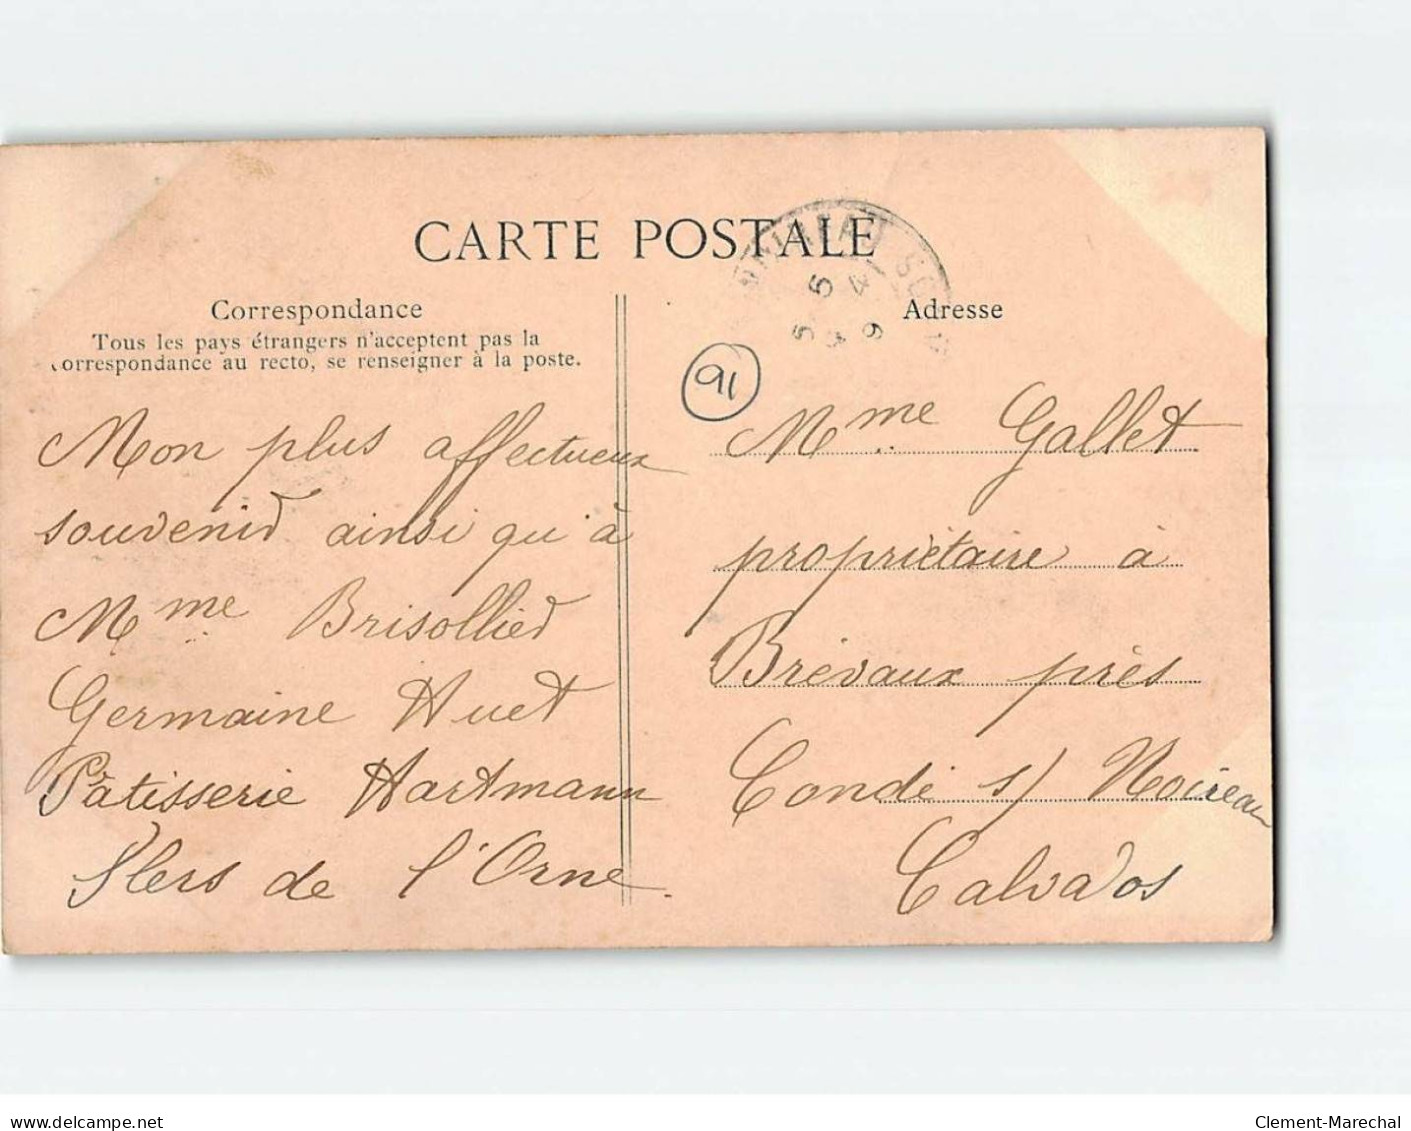 CARTE POSTALE
Correspondance
Tous les pays étrangers n'acceptent pas la
correspondance au recto, se renseigner à la poste.
Mon plus affectueux
souvenir ainsi qu'à
Mme Brisollier
Germaine Huet
Pâtisserie Hartmann
Flers de l'Orne.
91
Adresse
Mme Gallet
propriétaire à
Brévaux près
Condé s/ Noireau
Calvados
delcampe.net
Clement-Marechal